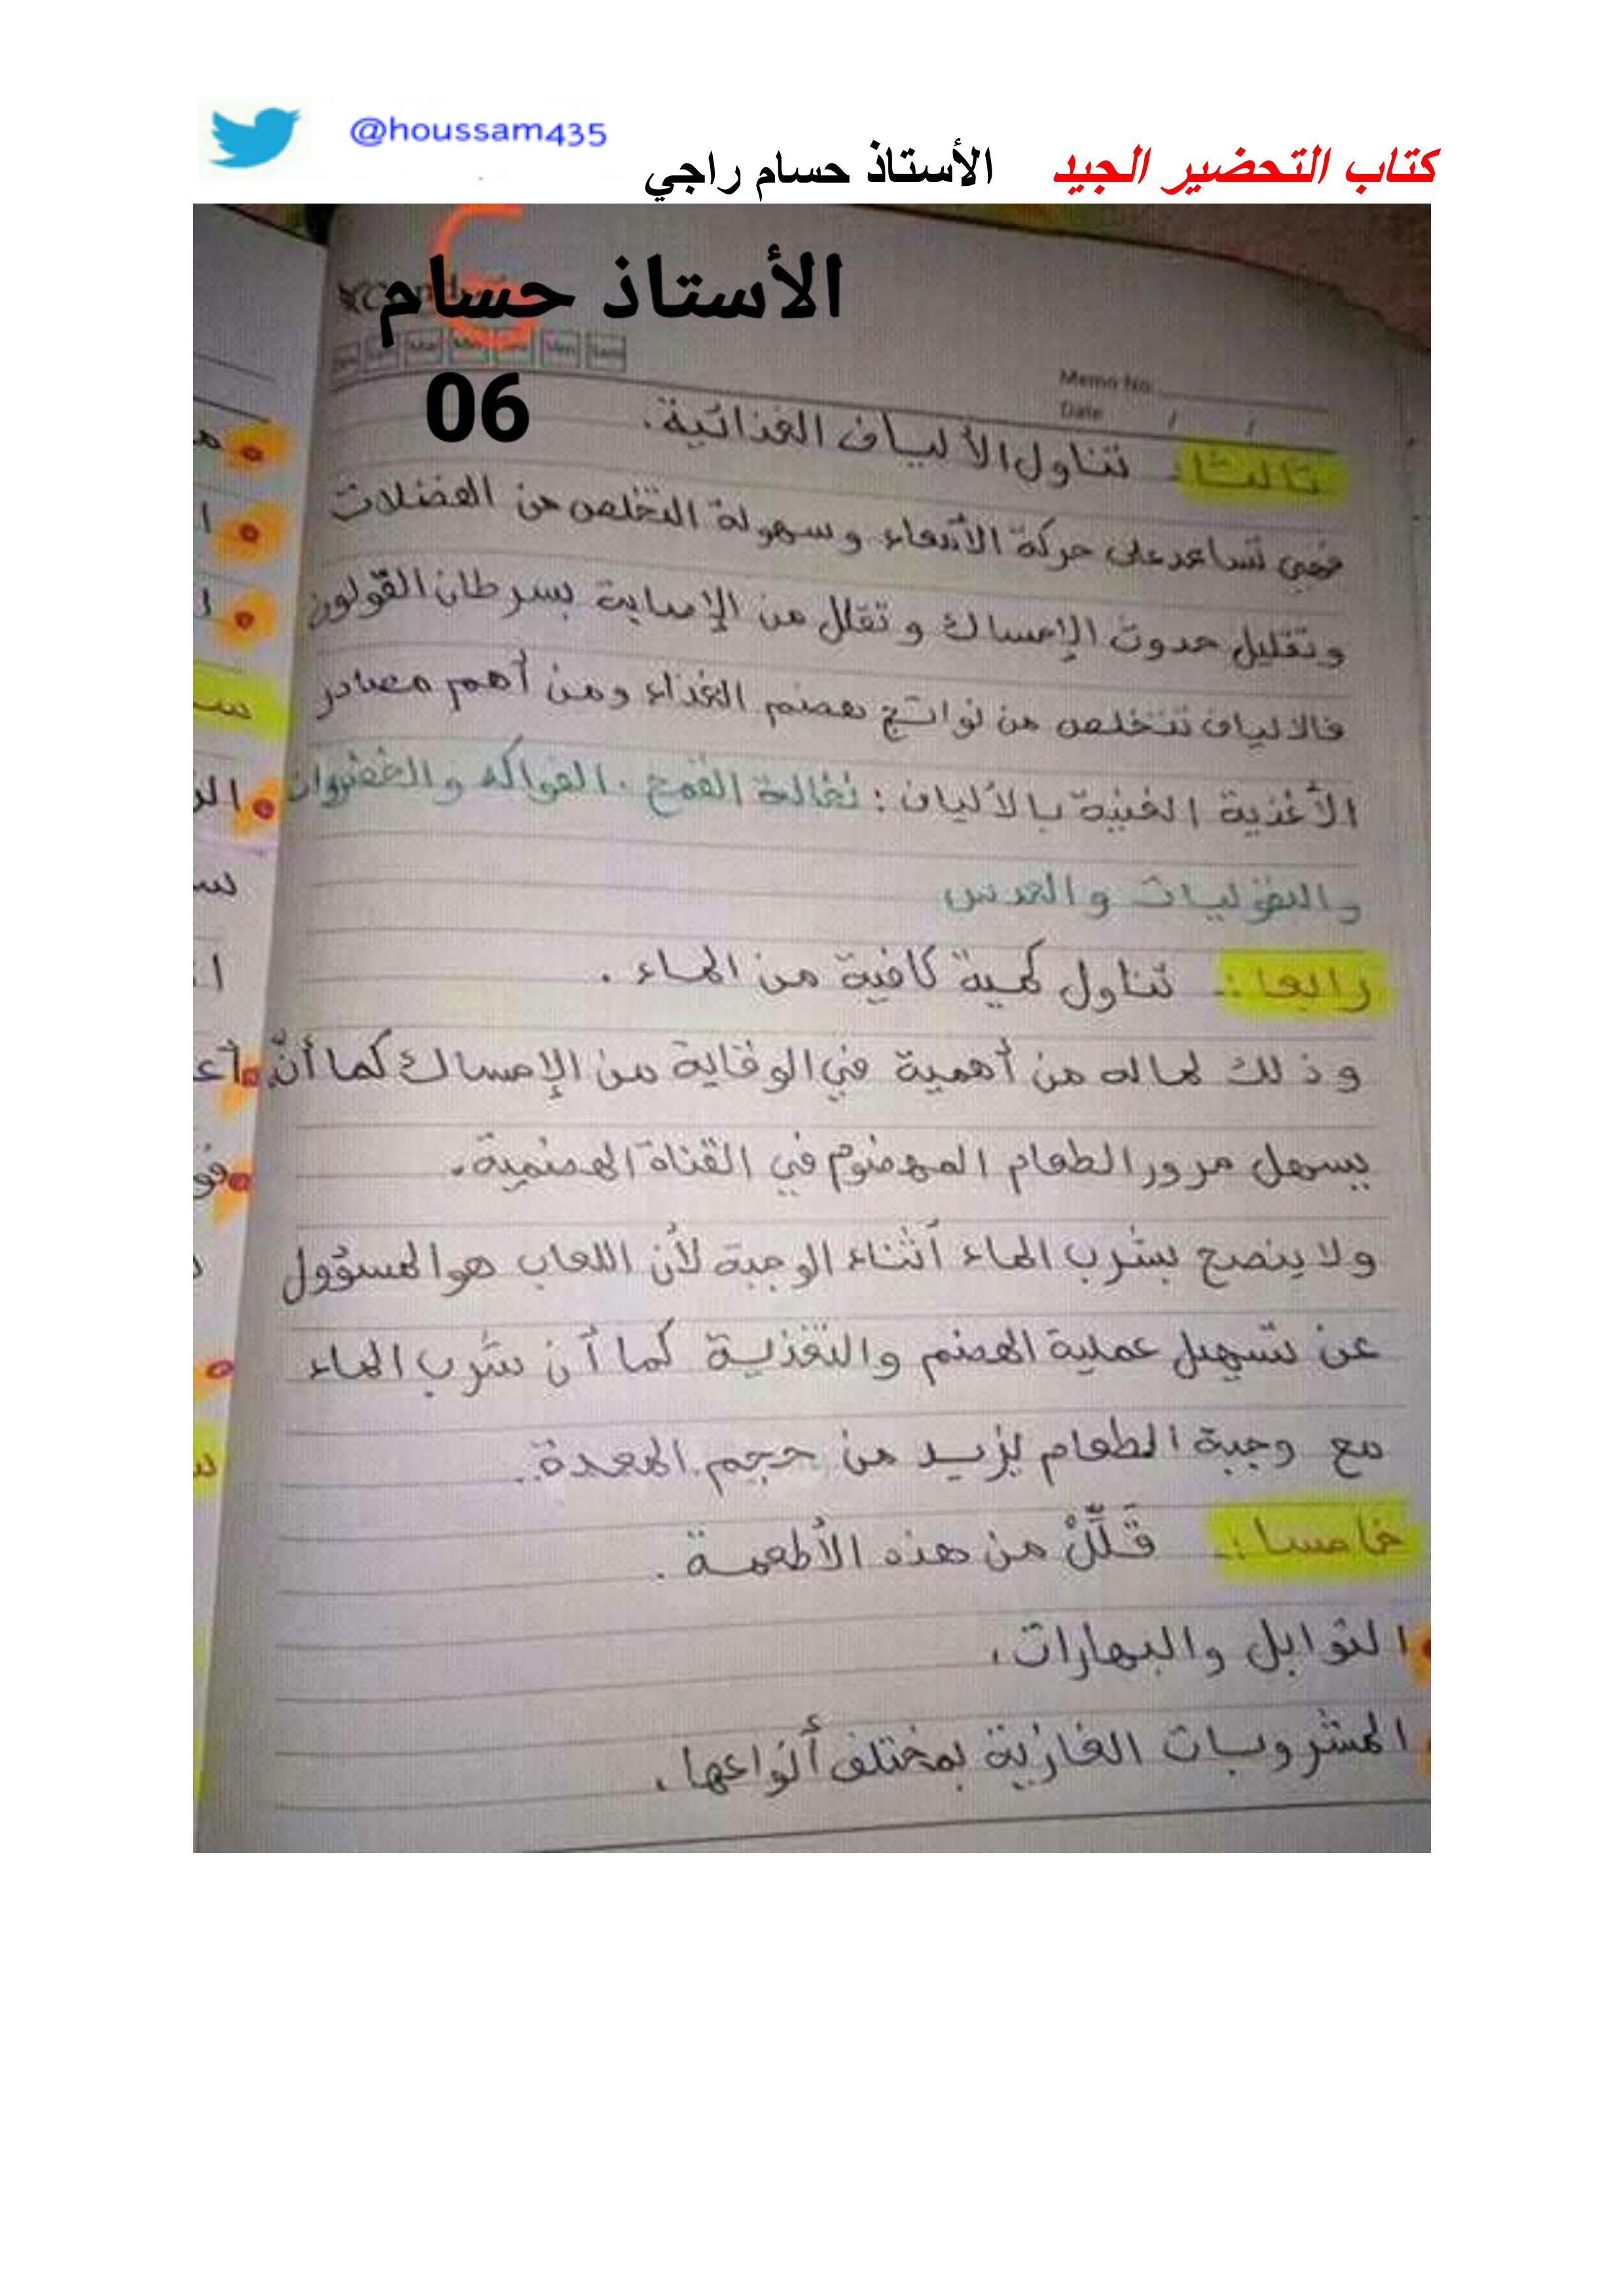 @houssam435
كتاب التحضير الجيد الأستاذ حسام راجي
الأستاذ حسام
06
Memo No.
Date / /
ثالثا: تناول الألياف الغذائية.
فهي تساعد على حركة الأمعاء وسهولة التخلص من الفضلات
وتقليل حدوث الإمساك وتقلل من الإصابة بسرطان القولون
فالألياف تتخلص من نواتج هضم الغذاء ومن أهم مصادر
الأغذية الغنية بالألياف: نخالة القمح. الفواكه والخضروات
والبقوليات والعدس
رابعا:- تناول كمية كافية من الماء.
وذلك لما له من أهمية في الوقاية من الإمساك كما أنّه
يسهل مرور الطعام المهضوم في القناة الهضمية.
ولا ينصح بشرب الماء أثناء الوجبة لأن اللعاب هو المسؤول
عن تسهيل عملية الهضم والتغذية كما أن شرب الماء
مع وجبة الطعام يزيد من حجم المعدة..
خامسا:- قَلِّلْ من هذه الأطعمة.
التوابل والبهارات.
المشروبات الغازية بمختلف أنواعها.